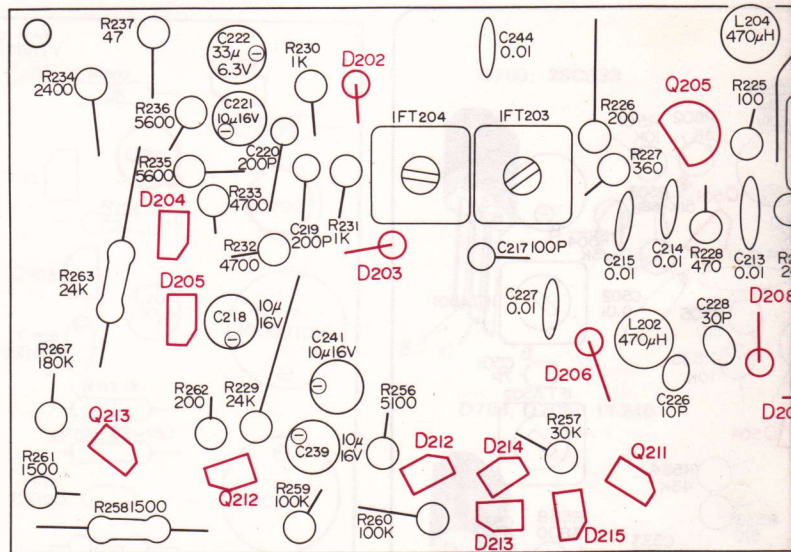 R237
47
C222
33μ
6.3V
R230
1K
D202
C244
0.01
L204
470μH
R234
2400
R236
5600
C221
10μ16V
IFT204
IFT203
R226
200
Q205
R225
100
R235
5600
C220
200P
R227
360
D204
R233
4700
C219
200P
R231
1K
R232
4700
D203
C217 100P
C215
0.01
C214
0.01
R228
470
C213
0.01
R263
24K
D205
C218
10μ
16V
C227
0.01
L202
470μH
C228
30P
D208
R267
180K
C241
10μ16V
D206
C226
10P
R262
200
R229
24K
R256
5100
Q213
C239
10μ
16V
D212
D214
R257
30K
Q211
R261
1500
Q212
R259
100K
R258 1500
R260
100K
D213
D215